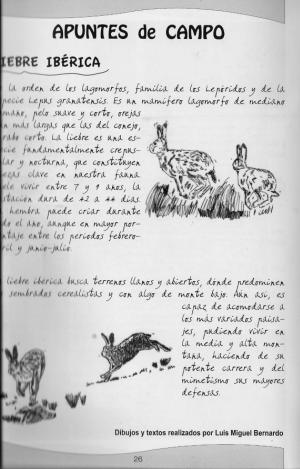 APUNTES de CAMPO
IEBRE IBÉRICA
la orden de los lagomorfos, familia de los Lepóridos y de la
pecie Lepus granatensis. Es un mamífero lagomorfo de mediano
maño, pelo suave y corto, orejas
n más largas que las del conejo,
rabo corto. La liebre es una es-
cie fundamentalmente crepus-
lar y nocturna, que constituyen
ezas clave en nuestra fauna
ele vivir entre 7 y 9 años, la
stación dura de 42 a 44 días.
hembra puede criar durante
do el año, aunque en mayor por-
ntaje entre los periodos febrero-
ril y junio-julio.
liebre ibérica busca terrenos llanos y abiertos, donde predominen
sembrados cerealistas y con algo de monte bajo. Aún así, es
capaz de acomodarse a
los más variados paisa-
jes, pudiendo vivir en
la media y alta mon-
taña, haciendo de su
potente carrera y del
mimetismo sus mayores
defensas.
Dibujos y textos realizados por Luis Miguel Bernardo
26